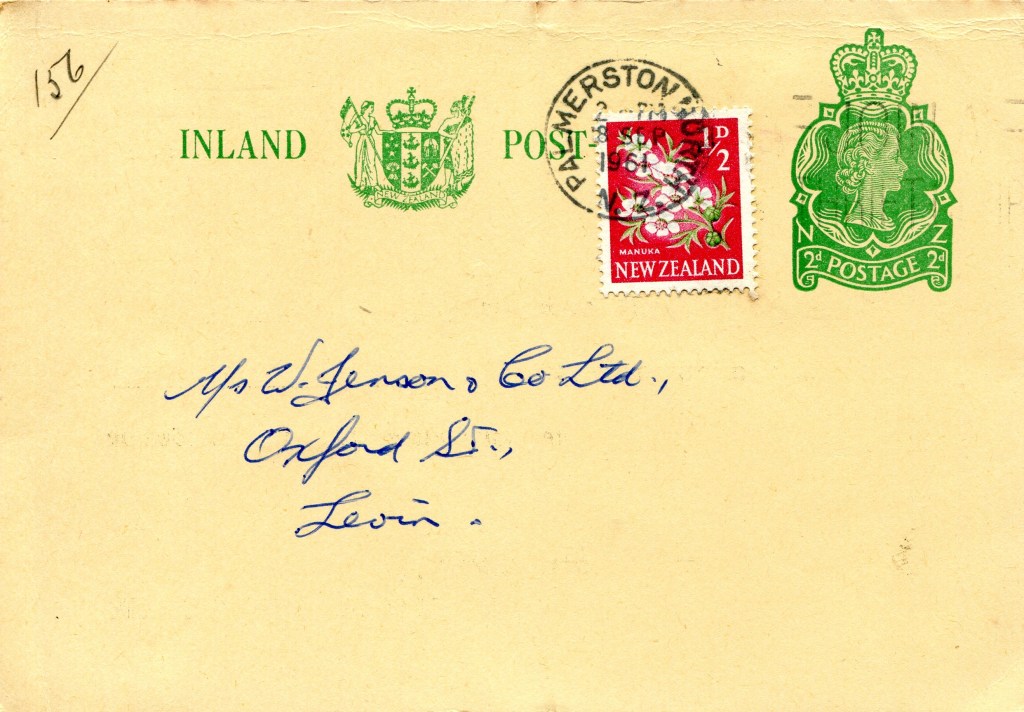 156
INLAND POST-
NEW ZEALAND
PALMERSTON NORTH
8 SEP
1961
N.Z.
½D
MANUKA
NEW ZEALAND
N Z
2d POSTAGE 2d
M/s W. Jenson & Co Ltd.,
Oxford St.,
Levin.